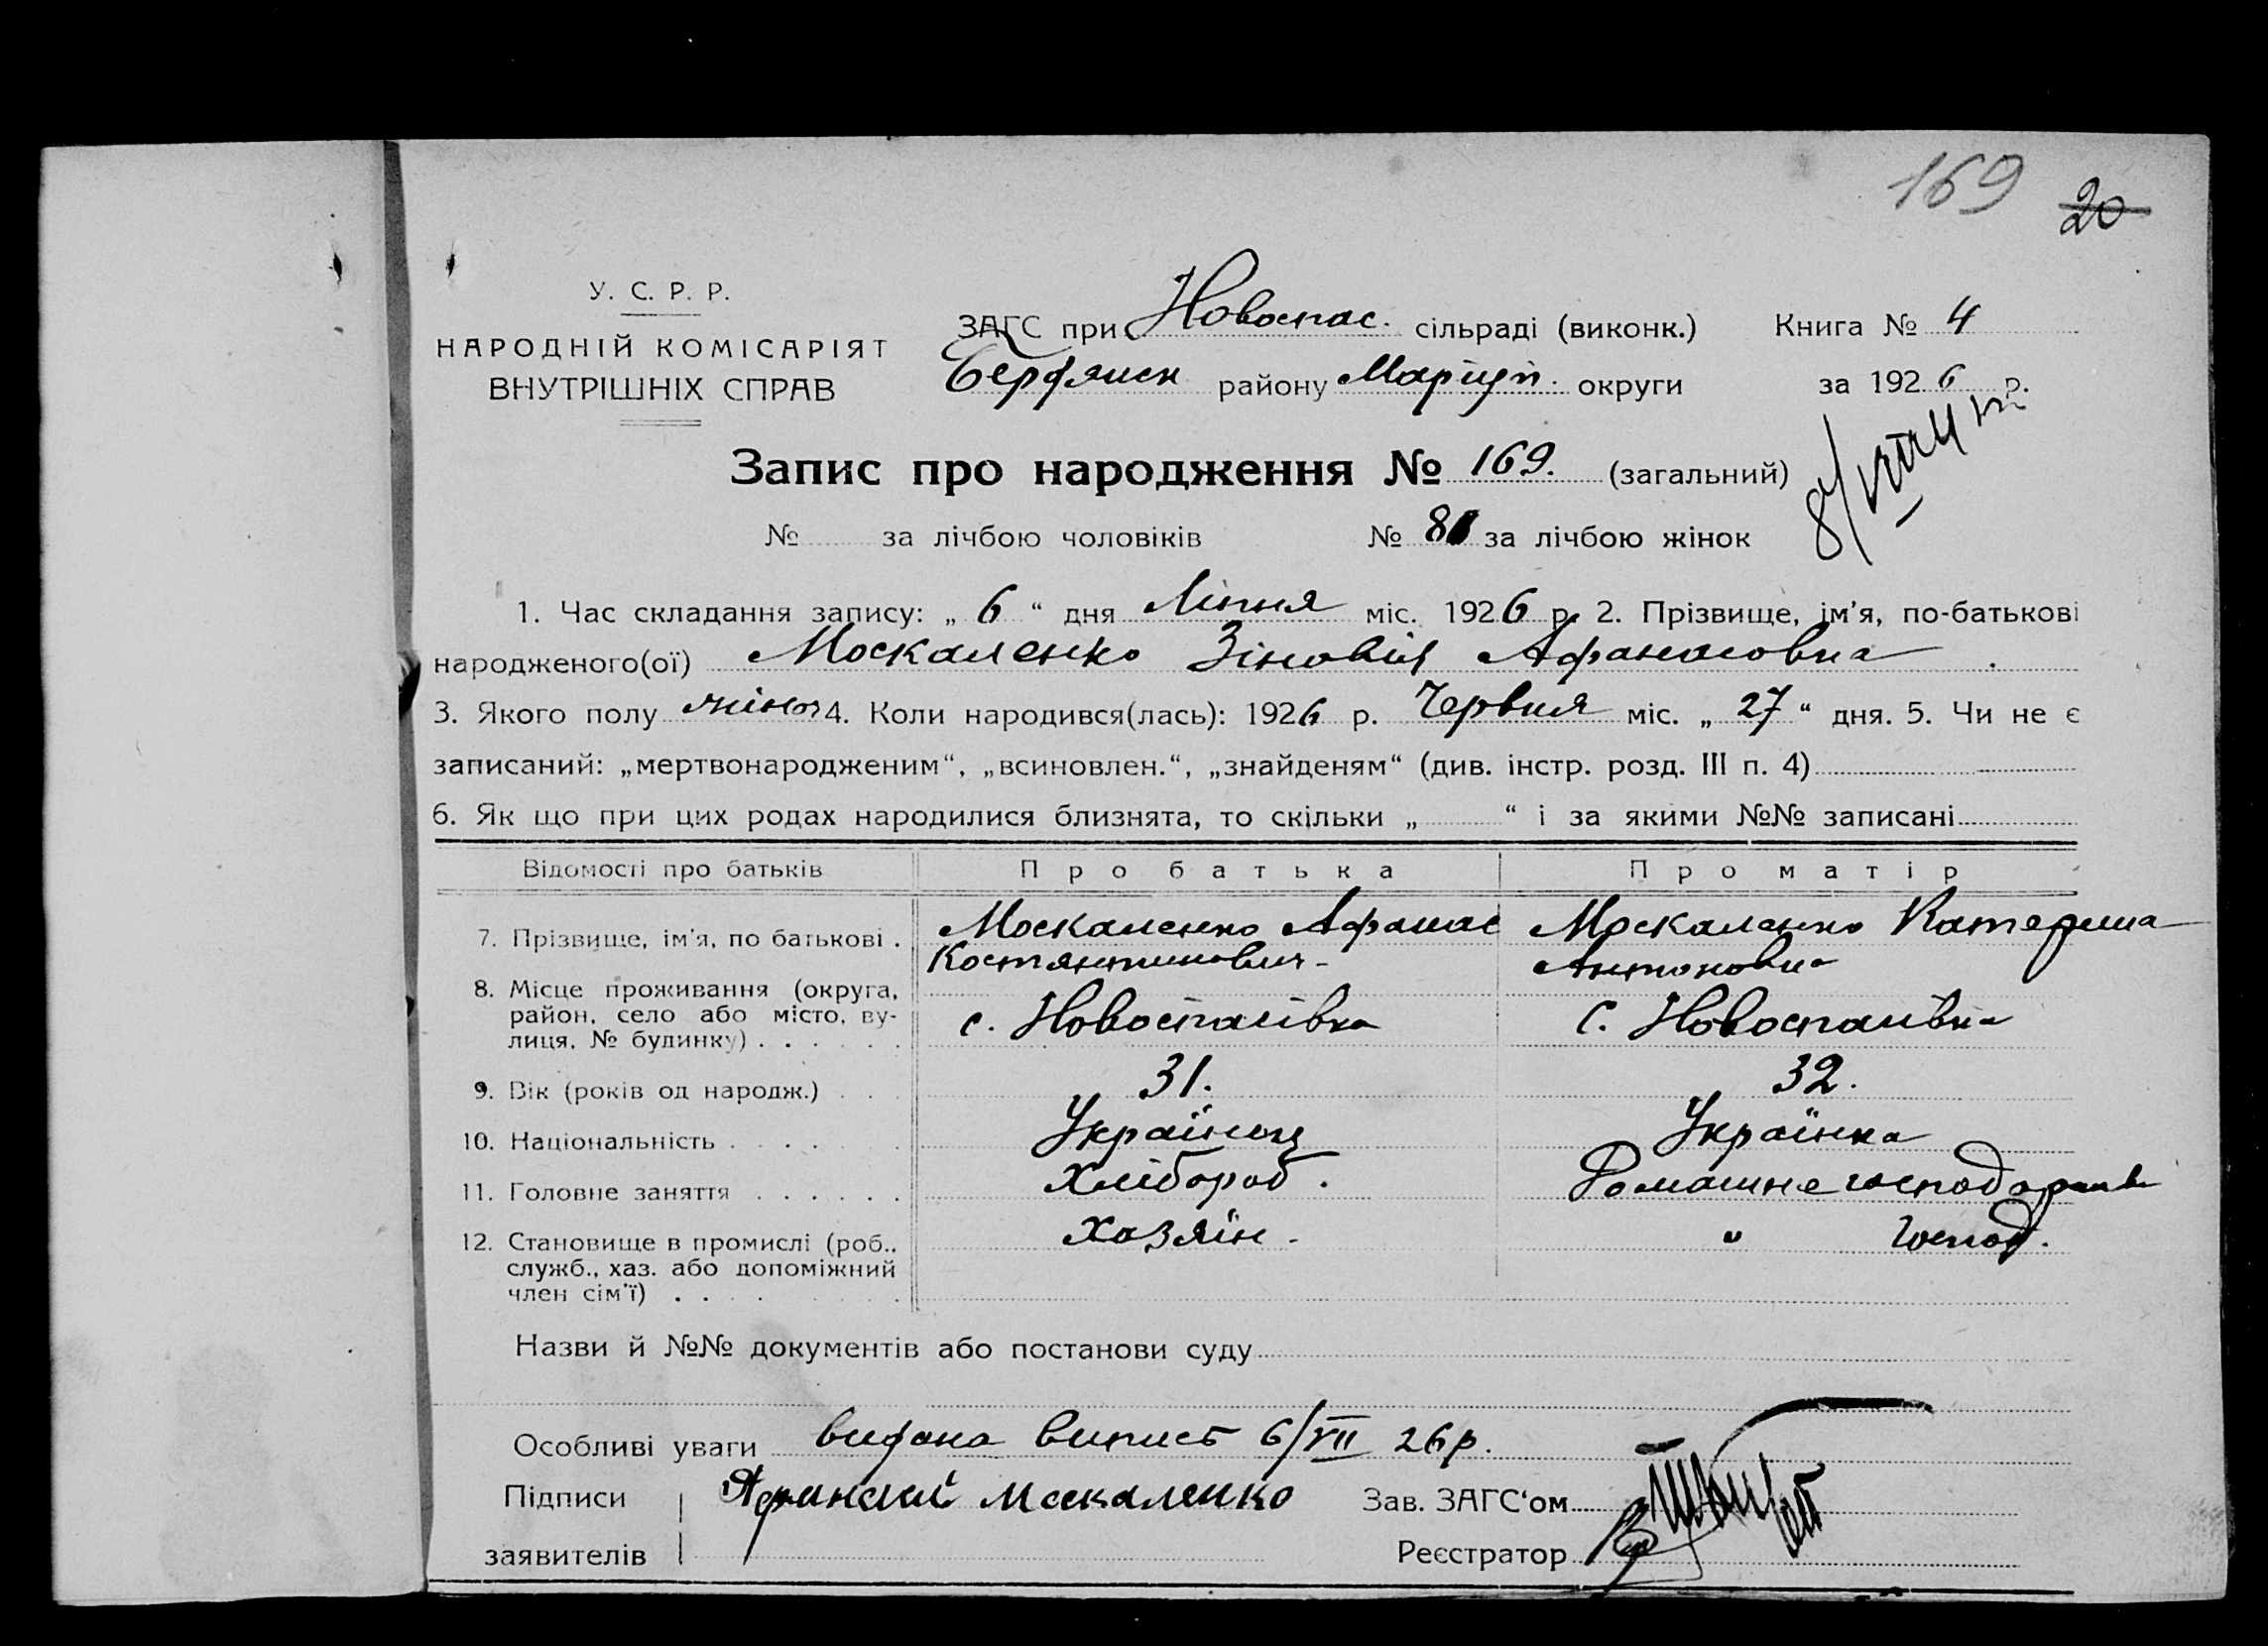 169 20
У. С. Р. Р.
НАРОДНІЙ КОМІСАРІЯТ
ВНУТРІШНІХ СПРАВ
ЗАГС при Новоспас. сільраді (виконк.) Книга № 4
Бердянск району Маріуп. округи за 1926 р.
Запис про народження № 169. (загальний)
№ за лічбою чоловіків № 81 за лічбою жінок
1. Час складання запису: „ 6 “ дня Липня міс. 1926 р. 2. Прізвище, ім’я, по-батькові
народженого(ої) Москаленко Зіновія Афанасовна
3. Якого полу жіноч 4. Коли народився(лась): 1926 р. Червня міс. „ 27 “ дня. 5. Чи не є
записаний: „мертвонародженим“, „всиновлен.“, „знайденям“ (див. інстр. розд. III п. 4)
6. Як що при цих родах народилися близнята, то скільки „ “ і за якими №№ записані
Відомості про батьків Про батька Про матір
7. Прізвище, ім’я, по батькові . Москаленко Афанас Москаленко Катерина
Костянтинович- Антоновна
8. Місце проживання (округа,
район, село або місто, ву-
лиця, № будинку) . . . . . . с. Новоспаівка С. Новоспаівка
9. Вік (років од народж.) . . . 31. 32.
10. Національність . . . . . . Українец Українка
11. Головне заняття . . . . . . Хлібороб. Домашне господарств
12. Становище в промислі (роб.,
служб., хаз. або допоміжний
член сім’ї) . . . . Хазяїн - " господ.
Назви й №№ документів або постанови суду
Особливі уваги видана випись 6/VII 26 р.
Підписи Афанасий Москаленко Зав. ЗАГС‘ом
заявителів Реєстратор